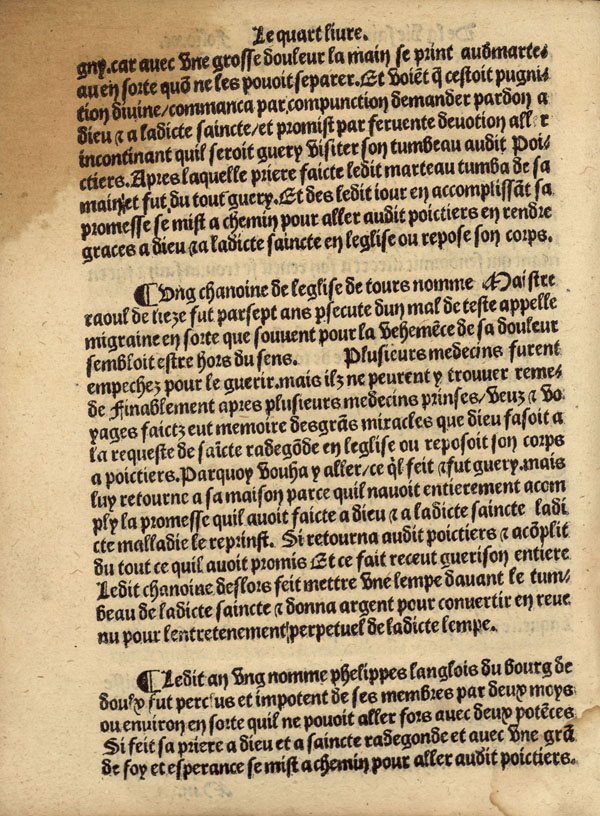 Le quart liure.
gny. car auec vne grosse douleur la main se print audmarte/
au en sorte quõ ne les pouoit separer. Et voiẽt q̃ cestoit pugni/
tion diuine/commanca par compunction demander pardon a
dieu ⁊ a ladicte saincte/et promist par feruente deuotion aller
incontinant quil seroit guery visiter son tumbeau audit Poi/
ctiers. Apres laquelle priere faicte ledit marteau tumba de sa
main/et fut du tout guery. Et des ledit iour en accomplissãt sa
promesse se mist a chemin pour aller audit poictiers en rendre
graces a dieu ⁊ a ladicte saincte en leglise ou repose son corps.
¶ Vng chanoine de leglise de tours nomme Maistre
raoul de lieze fut par sept ans psecute dun mal de teste appelle
migraine en sorte que souuent pour la vehemẽce de sa douleur
sembloit estre hors du sens. Plusieurs medecins furent
empechez pour le guerir. mais ilz ne peurent y trouuer reme/
de Finablement apres plusieurs medecins prinses/veuz ⁊ vo
yages faictz eut memoire des grãs miracles que dieu fasoit a
la requeste de saĩcte radegõde en leglise ou reposoit son corps
a poictiers. Parquoy vouha y aller/ce q̃l feit ⁊ fut guery. mais
luy retourne a sa maison parce quil nauoit entierement acom
ply la promesse quil auoit faicte a dieu ⁊ a ladicte saincte ladi
cte malladie le reprinst. Si retourna audit poictiers ⁊ acõplit
du tout ce quil auoit promis Et ce fait receut guerison entiere
Ledit chanoine deslors feit mettre vne lempe dauant le tum/
beau de ladicte saincte ⁊ donna argent pour conuertir en reue
nu pour lentretenement perpetuel de ladicte lempe.
¶ Ledit an vng nomme phelippes langlois du bourg de
fut perclus et impotent de ses membres par deux moys
ou enuiron en sorte quil ne pouoit aller fors auec deux potẽces
Si feit sa priere a dieu et a saincte radegonde et auec vne grã
de foy et esperance se mist a chemin pour aller audit poictiers.